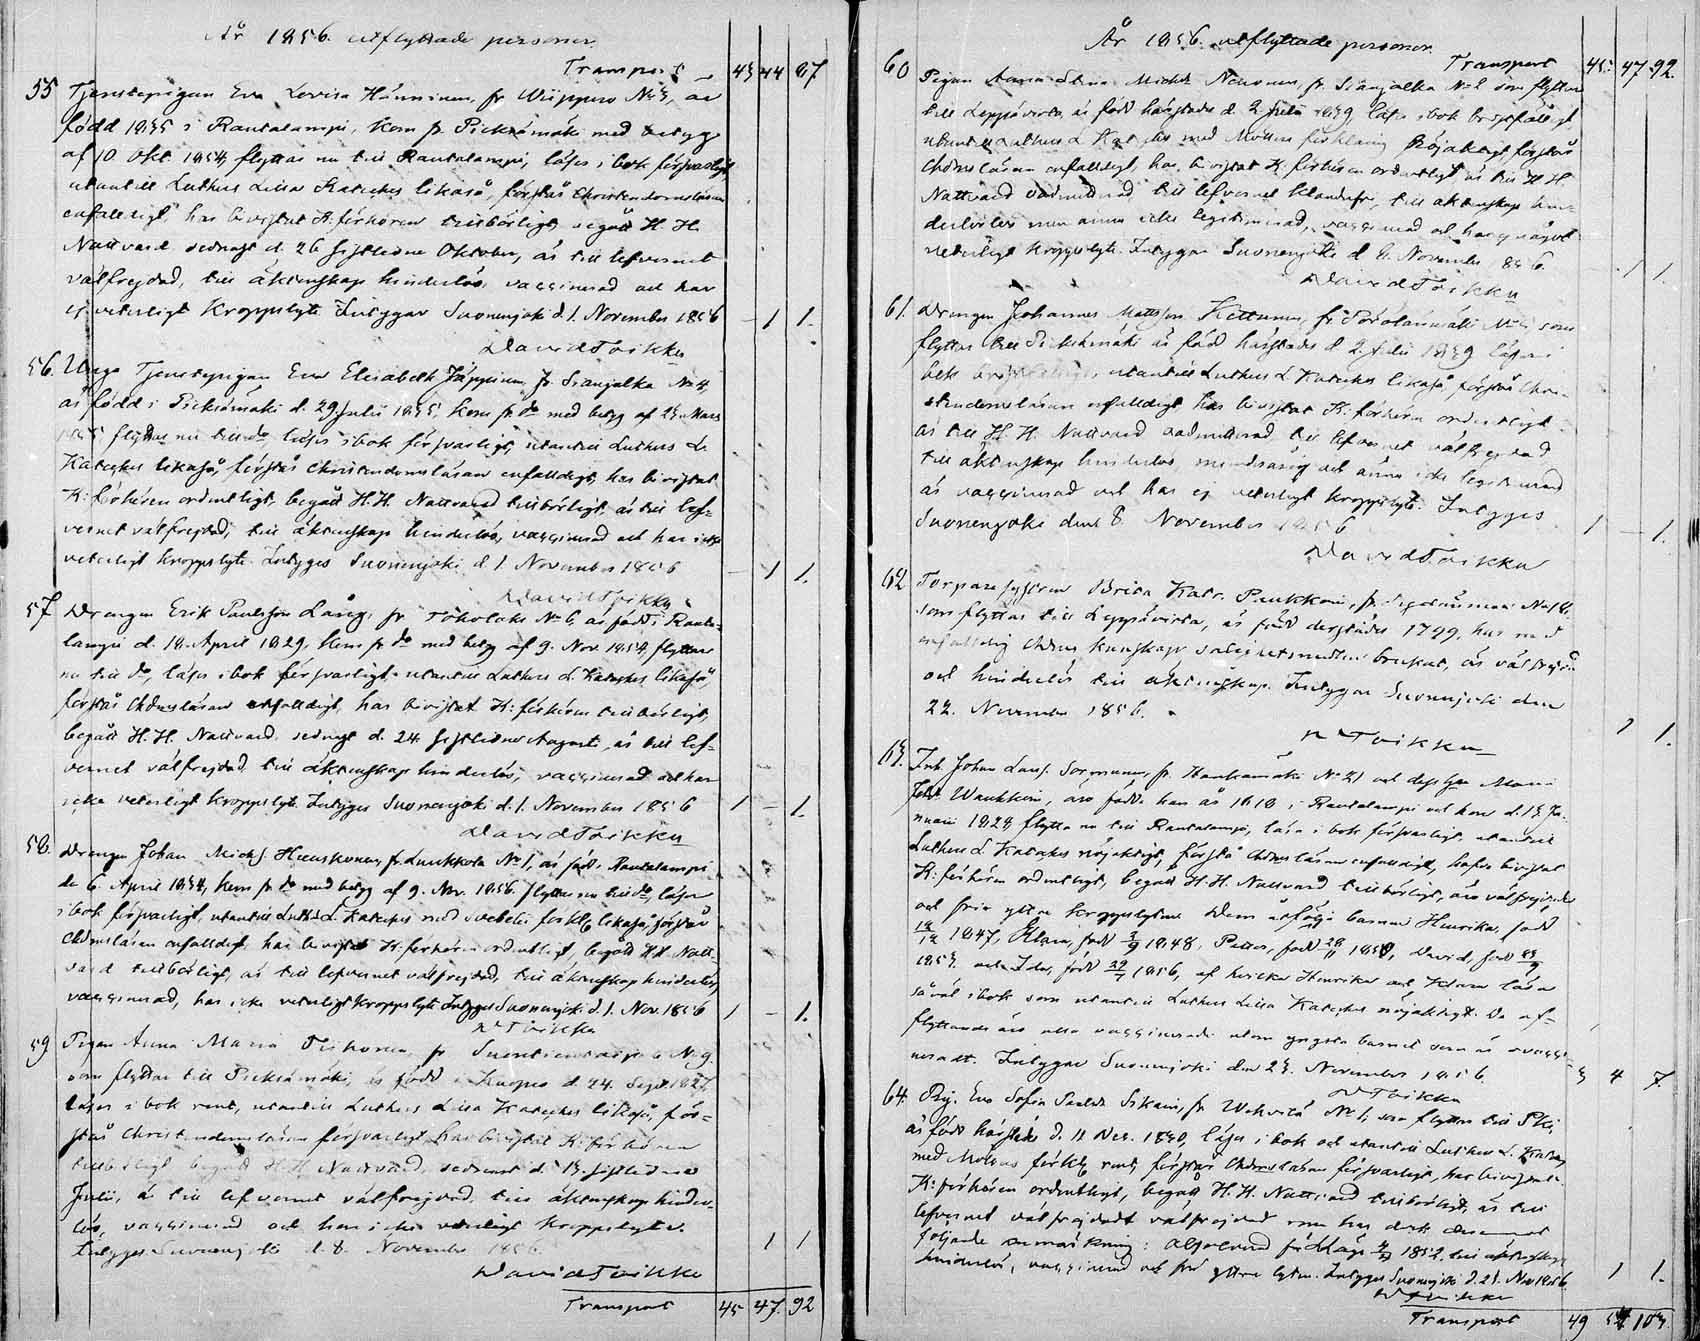 År 1856. utflyttade personer.
Transport 43 44 87
55 Tjenstepigan Eva Lovisa Hänninen, fr. N:o 3, är
född 1835 i Rautalampi, kom fr. Pieksämäki med betyg
af 10 Okt. 1854, flyttar nu till Rautalampi, läser i bok försvarligt
utantill Luthers Lilla Kateches likaså, förstår Christendomsläran
enfaldigt, har bivistat K: förhören tillbörligt, begått H. H.
Nattvard sednast d. 26 sistledne Oktober, är till lefvernet
välfrejdad, till äktenskap hinderlös, vaccinerad och har
ej veterligt Kroppslyte. Intygar Suonenjoki d. 1. November 1856 – 1 1.
David Toikku
56. Unga Tjenstepigan Eva Elisabeth Jäppinen, fr. Sianjalka N:o 4,
är född i Pieksämäki d. 29 Julii 1835, kom fr. do med betyg af 23. Mars
flyttar nu till do, läser i bok försvarligt, utantill Luthers L.
Kateches likaså, förstår Christendomsläran enfaldigt, har bivistat
K: förhören ordentligt, begått H.H. Nattvard tillbörligt, är till lef-
vernet välfrejdad, till äktenskap hinderlös, vaccinerad och har icke
veterligt kroppslyte. Intyges Suonenjoki d. 1. November 1856 – 1 1.
David Toikku
57 Drengen Erik Paulsson Lång, fr. Toholaks N:o 6, är född i Rauta-
lampi d. 18. April 1829, kom fr. do med betyg af 9. Nov. 1854, flyttar
nu till do, läser i bok försvarligt, utantill Luthers L. Kateches likaså,
förstår Chdmsläran enfaldigt, har bivistat K: förhören tillbörligt,
begått H.H. Nattvard, sednast d. 24. sistledne Augusti, är till lef-
vernet välfrejdad, till äktenskap hinderlös, vaccinerad och har
icke veterligt kroppslyte. Intyges Suonenjoki d. 1. November 1856 1 – 1.
David Toikku
58. Drengen Johan Michs. Huuskonen, fr. Luukkola N:o 1, är född i Rautalampi
d. 6. April 1834, kom fr. do med betyg af 9. Nov. 1856. flyttar nu till do, läser
i bok försvarligt, utantill Luth. L. Kateches med Svebelii förkl. likaså, förstår
Chdmsläran enfaldigt, har bivistat K: förhören ordentligt, begått H.H. Natt-
vard tillbörligt, är till lefvernet välfrejdad, till äktenskap hinderlös,
vaccinerad, har icke veterligt kroppslyte. Intyges Suonenjoki d. 1. Nov. 1856 1 – 1.
D Toikku
59 Pigan Anna Maria fr. N:o 9.
som flyttar till Pieksämäki, är född i Kuopio d. 24. Sept. 1827,
läser i bok rent, utantill Luthers Lilla Kateches likaså, för-
står Christendomsläran försvarligt, har bivistat K: förhören
tillbörligt, begått H.H. Nattvard, sednast d. 13. sistledne
Julii, är till lefvernet välfrejdad, till äktenskap hinder-
lös, vaccinerad och har icke veterligt kroppslyte.
Intyges Suonenjoki d. 8. November 1856. 1 1
David Toikku
Transport 45 47. 92
År 1856. utflyttade personer.
Transport 45. 47. 92.
60 Pigan Anna Stina Michsd. fr. Sianjalka N:o 2 som flyttar
till Leppävirta, är född härstädes d. 2 Julii 1839 läser i bok bristfälligt
utantill Luthers L. Kateches med förklaring förstår
Chdmsläran enfaldigt, har bivistat K. förhören ordentligt, är till H. H.
Nattvard admitterad, till lefvernet klanderfri, till äktenskap hin-
derlös men ännu icke legitimerad, vaccinerad och har ej något
veterligt kroppslyte. Intygar Suonenjoki d. 8. November 1856. – 1 1.
David Toikku
61. Drengen Johannes Mattsson Kettunen, fr. N:o som
flyttar till Pieksämäki är född härstädes d. 2. Julii 1839 läser i
bok utantill Luthers L. Kateches likaså, förstår Chri-
stendomsläran enfaldigt, har bivistat K: förhören ordentligt
är till H. H. Nattvard admitterad, till lefvernet välfrejdad
till äktenskap hinderlös, minderårig och ännu icke legitimerad
är vaccinerad och har ej veterligt kroppslyte. Intyges
Suonenjoki den 8. November 1856 1 – 1.
David Toikku
62 Torpare Brita Katr. Puukkoin, fr. N:o 18.
som flyttar till Leppävirta, är född derstädes 1799, har med
enfaldig Chdms kunskap salighetsmedlen brukat, är välfrejdad
och hinderlös till äktenskap. Intygar Suonenjoki den
22. November 1856. 1 1.
D Toikku
63. Inh. Johan Lars. Sormunen, fr. N:o 21 och dess hustru Maria
äro födde han år 1818 i Rautalampi och hon d. 13 Ja-
nuari 1824, flytta nu till Rautalampi, läsa i bok försvarligt, utantill
Luthers L. Kateches nöjaktigt, förstå Chdmsläran enfaldigt, hafva bivistat
K: förhören ordentligt, begått H. H. Nattvard tillbörligt, äro välfrejdade
och fria yttre kroppslyten. Dem åtfölja barnen Henrika, född
18/12 1847, Klara, född 3/9 1848, Petter, född 28/11 1850, David, född
1853. och Ida, född 29/7 1856, af hvilka Henrika och Klara läsa
såväl i bok som utantill Luthers Lilla Kateches nöjaktigt. De af-
flyttande äro alla vaccinerade utom yngsta barnet som är ovacci-
neradt. Intygar Suonenjoki den 23. November 1856. 3 4 7.
D Toikku
64. Pig. Eva Sofia Paulsd. Sikain, fr. N:o 1, som flyttar till
är född härstädes d. 11 Dec. 1830, läser i bok och utantill Luthers L. Katech.
med förkl. rent, förstår Chdmsläran försvarligt, har bivistat
K: förhören ordentligt, begått H. H. Nattvard tillbörligt, är till
lefvernet välfrejdad som har dock
följande anmärkning: 1852. till äktenskap
hinderlös, vaccinerad och fri yttre lyten. Intyges Suonenjoki d. 23. Nov 1856 1 1.
D Toikku
Transport 49 54. 103.